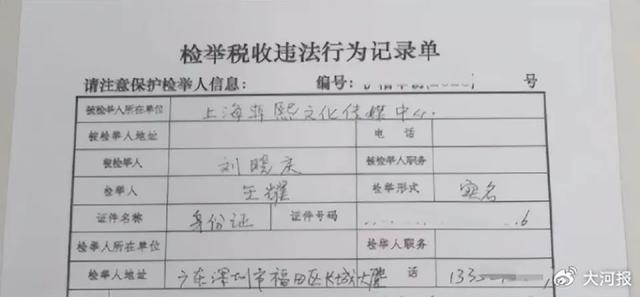 检举税收违法行为记录单
请注意保护检举人信息： 编号： 号
被检举人所在单位 上海菲熙文化传媒中心
被检举人地址 电 话
被检举人 刘晓庆 被检举人职务
检举人 王耀 检举形式 实名
证件名称 身份证 证件号码 6
检举人所在单位 检举人职务
检举人地址 广东深圳市福田区长城大厦 话 133
大河报